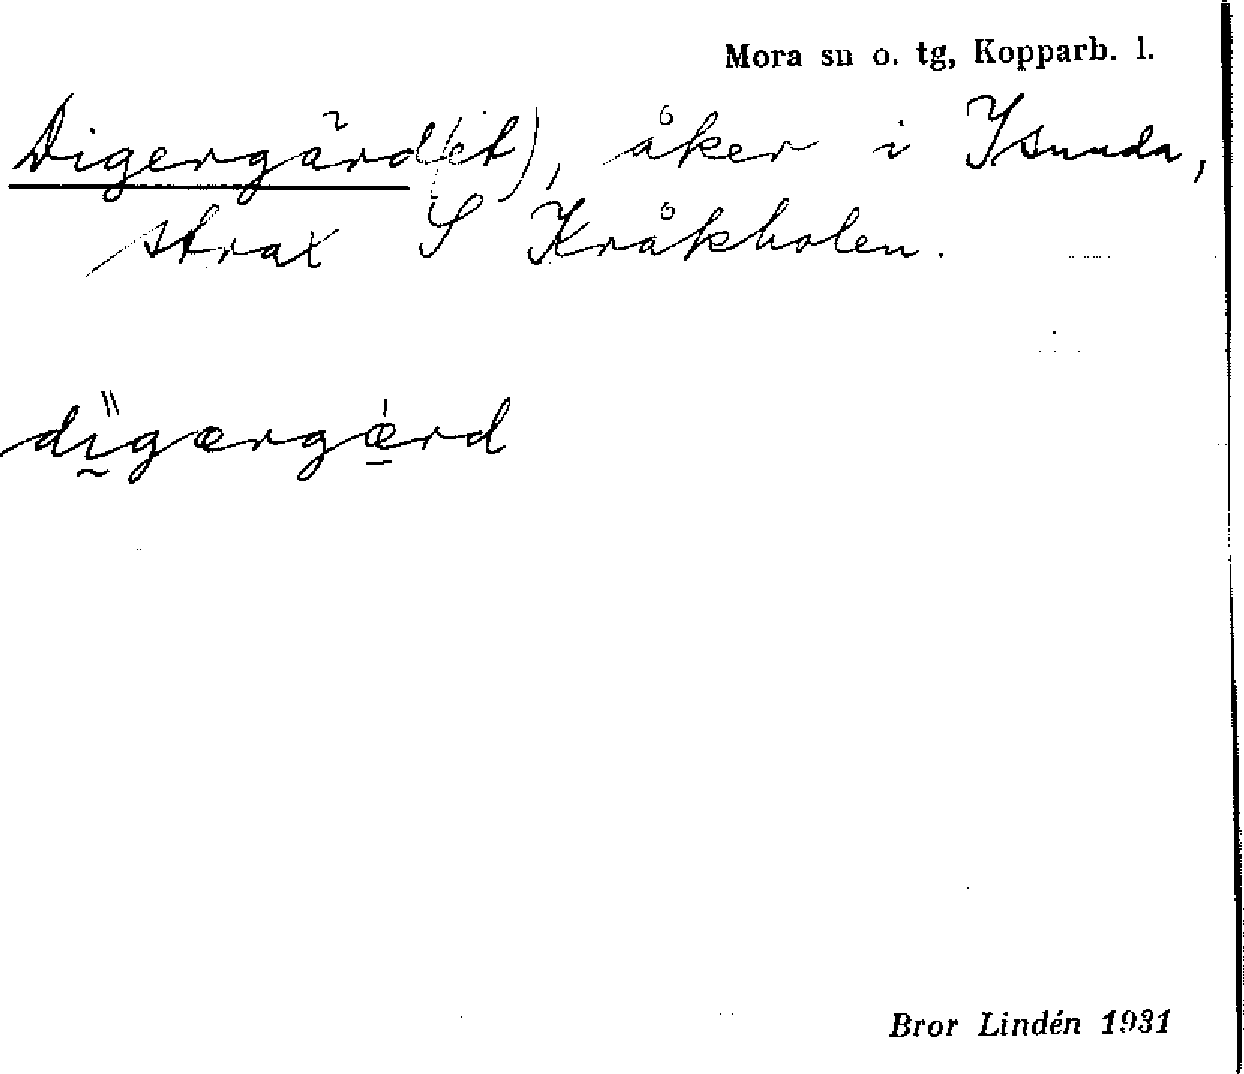 Mora sn o. tg, Kopparb. l.
Digergärd(et), åker i Isunda,
strax S Kråkholen.
dḭ̋gærgǽ̱rd
Bror Lindén 1931